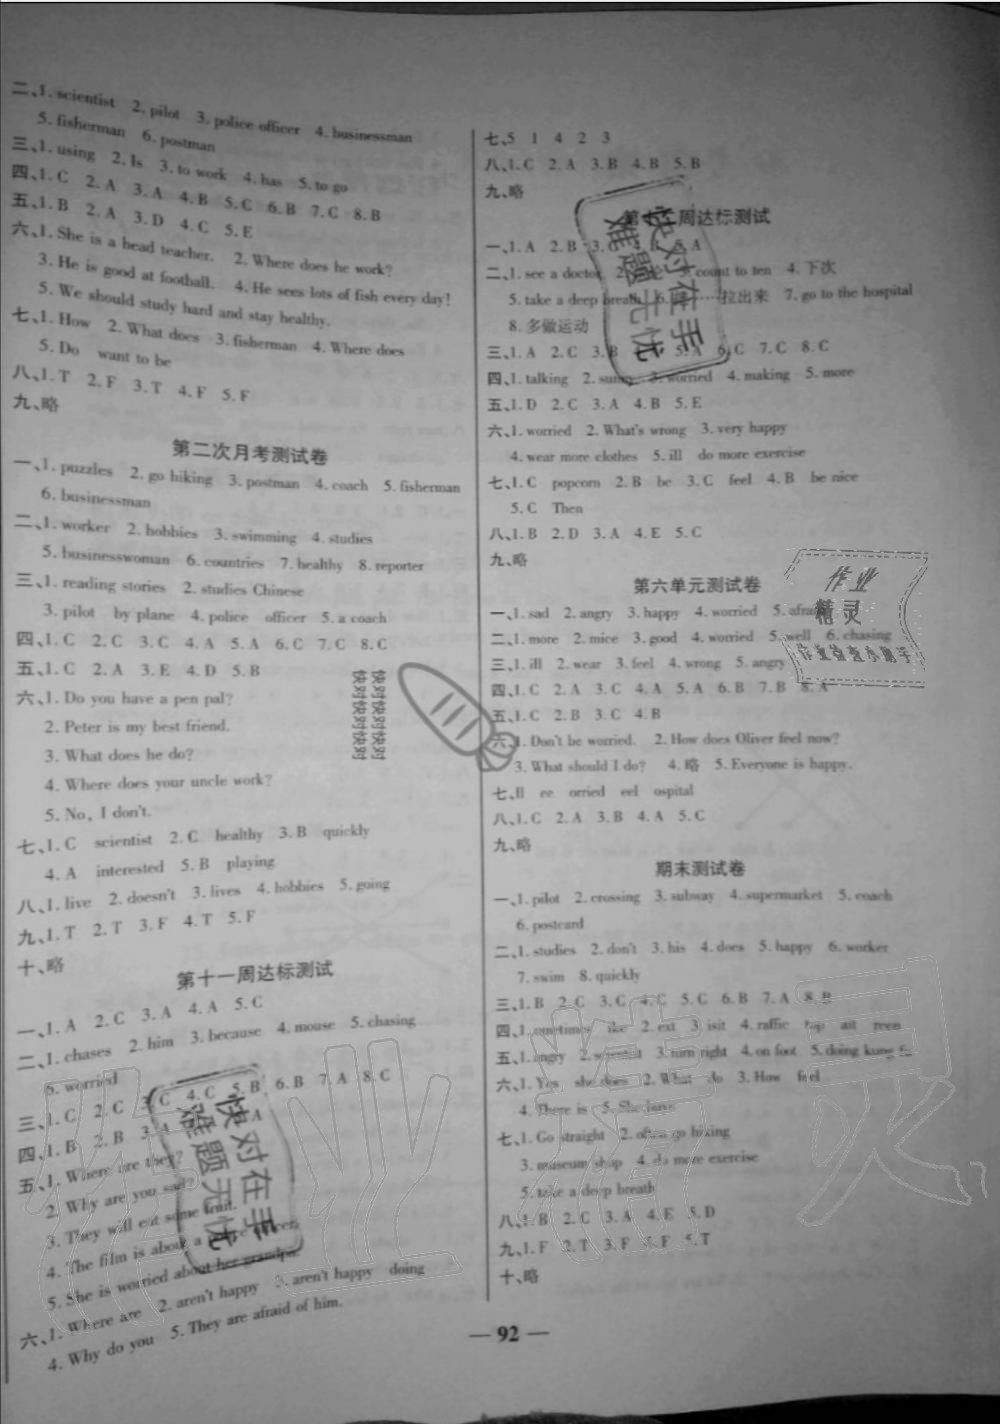 二、1. scientist 2. pilot 3. police officer 4. businessman
5. fisherman 6. postman
三、1. using 2. Is 3. to work 4. has 5. to go
四、1. C 2. A 3. A 4. B 5. C 6. B 7. C 8. B
五、1. B 2. A 3. D 4. C 5. E
六、1. She is a head teacher. 2. Where does he work?
3. He is good at football. 4. He sees lots of fish every day!
5. We should study hard and stay healthy.
七、1. How 2. What does 3. fisherman 4. Where does
5. Do want to be
八、1. T 2. F 3. T 4. F 5. F
九、略
第二次月考测试卷
一、1. puzzles 2. go hiking 3. postman 4. coach 5. fisherman
6. businessman
二、1. worker 2. hobbies 3. swimming 4. studies
5. businesswoman 6. countries 7. healthy 8. reporter
三、1. reading stories 2. studies Chinese
3. pilot by plane 4. police officer 5. a coach
四、1. C 2. C 3. C 4. A 5. A 6. C 7. C 8. C
五、1. C 2. A 3. E 4. D 5. B
六、1. Do you have a pen pal?
2. Peter is my best friend.
3. What does he do?
4. Where does your uncle work?
5. No, I don't.
七、1. C scientist 2. C healthy 3. B quickly
4. A interested 5. B playing
八、1. live 2. doesn't 3. lives 4. hobbies 5. going
九、1. T 2. T 3. F 4. T 5. F
十、略
第十一周达标测试
一、1. A 2. C 3. A 4. A 5. C
二、1. chases 2. him 3. because 4. mouse 5. chasing
6. worried
三、1. C 2. C 3. C 4. C 5. B 6. B 7. A 8. C
四、1. B 2. B 3. A A
五、1. Where are they?
2. Why are you sad?
3. They will eat some fruit.
4. The film is about a
5. She is worried about her grandpa.
六、1. Where are 2. aren't happy 3. aren't happy doing
4. Why do you 5. They are afraid of him.
七、5 1 4 2 3
八、1. C 2. A 3. B 4. B 5. B
九、略
周达标测试
一、1. A 2. B 3. B 5. A
二、1. see a doctor 2. 3. count to ten 4. 下次
5. take a deep breath 6. ……拉出来 7. go to the hospital
8. 多做运动
三、1. A 2. C 3. B 5. A 6. C 7. C 8. C
四、1. talking 2. sunny 3. worried 4. making 5. more
五、1. D 2. C 3. A 4. B 5. E
六、1. worried 2. What's wrong 3. very happy
4. wear more clothes 5. ill do more exercise
七、1. C popcorn 2. B be 3. C feel 4. B be nice
5. C Then
八、1. B 2. D 3. A 4. E 5. C
九、略
第六单元测试卷
一、1. sad 2. angry 3. happy 4. worried 5. afraid
二、1. more 2. mice 3. good 4. worried 5. well 6. chasing
三、1. ill 2. wear 3. feel 4. wrong 5. angry
四、1. C 2. A 3. C 4. A 5. A 6. B 7. B 8. A
五、1. C 2. B 3. C 4. B
六、1. Don't be worried. 2. How does Oliver feel now?
3. What should I do? 4. 略 5. Everyone is happy.
七、ll ee orried eel ospital
八、1. C 2. A 3. B 4. A 5. C
九、略
期末测试卷
一、1. pilot 2. crossing 3. subway 4. supermarket 5. coach
6. postcard
二、1. studies 2. don't 3. his 4. does 5. happy 6. worker
7. swim 8. quickly
三、1. B 2. C 3. C 4. C 5. C 6. B 7. A 8. B
四、1. ometimes ike 2. ext 3. isit 4. raffic top ait reen
五、1. angry 2. scientist 3. turn right 4. on foot 5. doing kung fu
六、1. Yes she does 2. What do 3. How feel
4. There is 5. She buys
七、1. Go straight 2. often go hiking
3. museum shop 4. do more exercise
5. take a deep breath
八、1. B 2. C 3. A 4. E 5. D
九、1. F 2. T 3. F 4. F 5. T
十、略
— 92 —
快对在手
难题无忧
快对在手
难题无忧
快对快对快对
快对快对快对
作业
精灵
作业检查小帮手
作业精灵